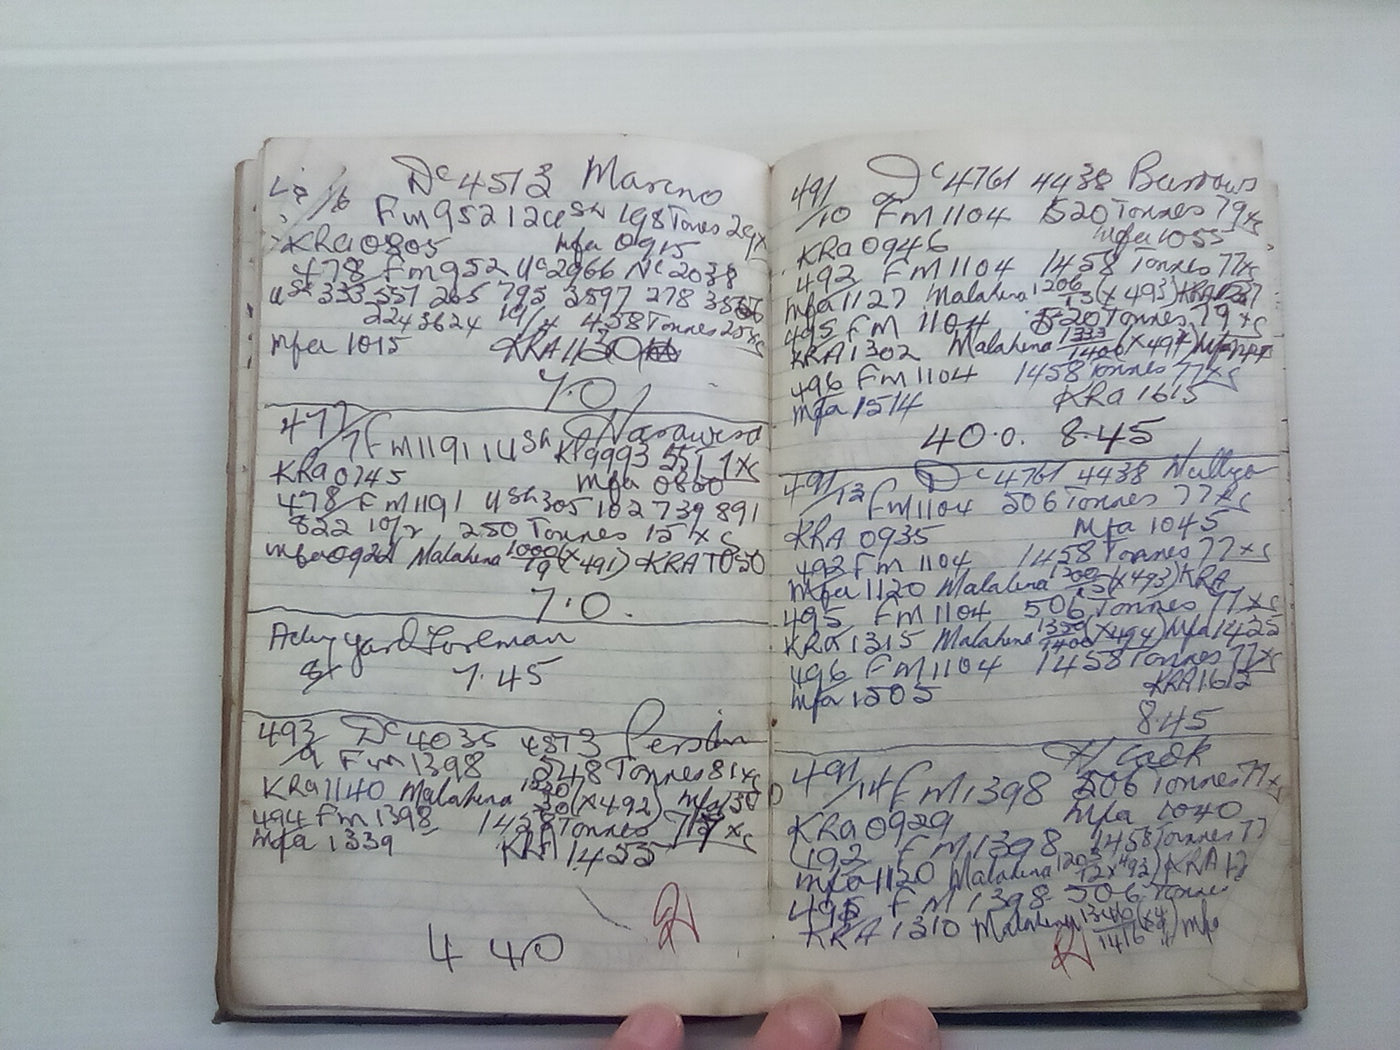 /16 Dc 4513 Moreno
Fm 952 12 USh 198 Tonnes 29 xs
KRa 0805 mfa 0915
478 Fm 952 Uc 2966 Nc 2038
USh 333 551 265 795 3597 278
2243624 19/4 458 Tonnes 25 xs
mfa 1015 KRA 1130
7.0
477/7 Fm 1191 1 USh
KRa 0745 mfa 0850
478 Fm 1191 USh 305 102 739 891
822 10/2 250 Tonnes 15 xs
mfa 0922 Malahina 1000/19 (x 491) KRA 1050
7.0.
Actg yard Foreman
7.45
493/9 Dc 4035 4513
Fm 1398 548 Tonnes 81 xs
KRa 1140 Malahina (x 492) mfa
494 Fm 1398 1458 Tonnes xs
mfa 1339 KRA 1455
4 40
491/10 Dc 4761 4438 Burrows
FM 1104 520 Tonnes 79 xs
KRa 0946 mfa 1055
492 FM 1104 1458 Tonnes 77 xs
mfa 1127 Malahina 1206/13 (x 493) KRA
495 FM 1104 520 Tonnes 79 xs
KRA 1302 Malahina 1333/1406 (x 494) mfa
496 Fm 1104 1458 Tonnes 77 xs
mfa 1514 KRa 1615
40.0. 8.45
491/12 Dc 4761 4438
Fm 1104 506 Tonnes 77 xs
KRA 0935 mfa 1045
492 Fm 1104 1458 Tonnes 77 xs
mfa 1120 Malahina (x 493) KRA
495 FM 1104 506 Tonnes 77 xs
KRa 1315 Malahina 1350/1400 (x 494) mfa 1425
496 FM 1104 1458 Tonnes 77 xs
mfa 1505 KRA 1612
8.45
491/14 FM 1398 506 Tonnes 77 xs
KRa 0929 mfa 1040
492 FM 1398 1458 Tonnes 77
mfa 1120 Malahina (x 493) KRA
495 FM 1398 506 Tonnes
KRA 1310 Malahina mfa